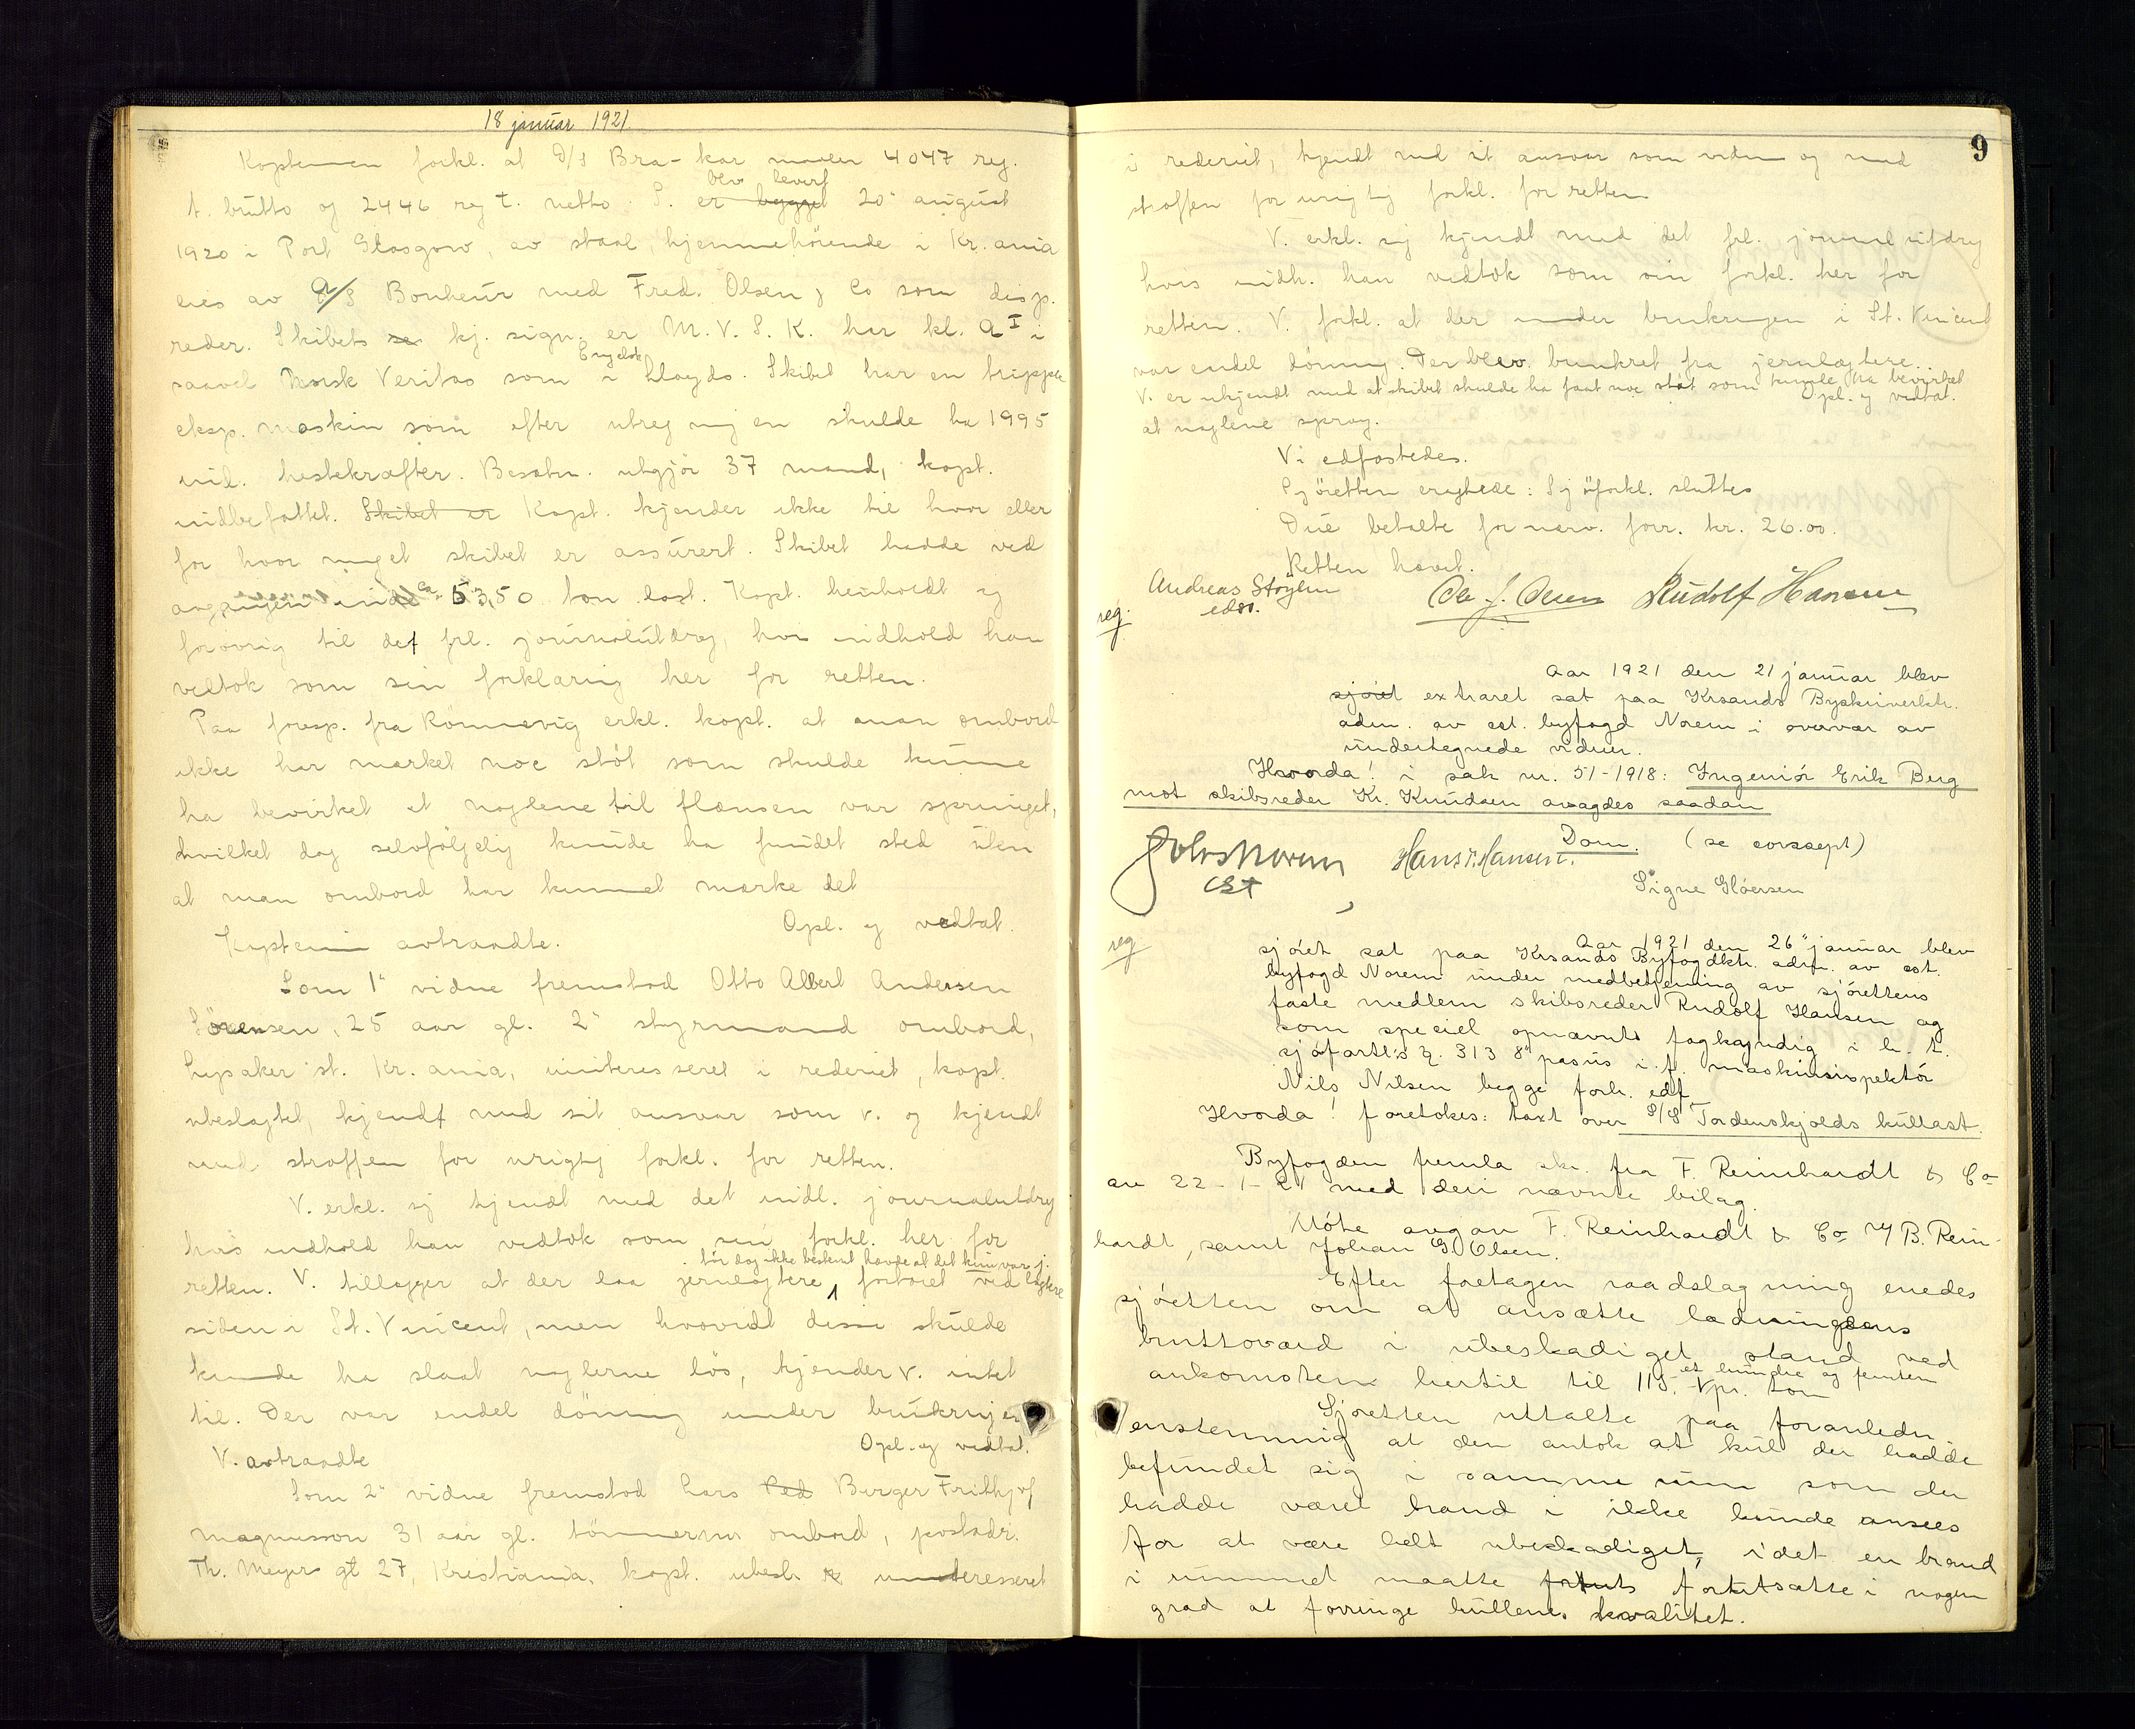 18 januar 1921
Kapteinen forkl. at D/S Bra-Kar maaler 4047 reg.
t. brutto og 2446 reg t. netto. S. er bygget blev levert 20de august
1920 i Port Glasgow, av staal, hjemmehörende i Kr.ania
eies av A/S Bonheur med Fred. Olsen & Co som disp.
reder. Skibets kj. sign. er M.V.S.K. har kl. A I i
saavel Norsk Veritas som i Engelsk Lloyds. Skibet har en trippel
eksp. maskin som efter utregningen skulde ha 1995
ind. hestekræfter. Besætn. utgjör 37 mand, kapt.
indbefattet. Skibet er Kapt. kjender ikke til hvor eller
for hvor meget skibet er assurert. Skibet hadde ved
avgangen inde ca. 5350 ton last. Kapt. henholdt sig
forövrig til det frl. journalutdrag, hvis indhold han
vedtok som sin forklaring her for retten.
Paa foresp. fra Rönnevig erkl. kapt. at man ombord
ikke har merket noe stöt som skulde kunne
ha bevirket at naglene til flænsen var sprunget,
hvilket dog selvfölgelig kunde ha fundet sted uten
at man ombord har kunnet merke det
Opl. og vedtat.
Kapteinen avtraadte.
Som 1ste vidne fremstod Otto Albert Andersen
Sörensen, 25 aar gl. 2den styrmand ombord,
Lysaker st. Kr.ania, uinteressert i rederiet, kapt.
ubeslægtet, kjendt med sit ansvar som v. og kjendt
med straffen for urigtig forkl. for retten.
V. erkl. sig kjendt med det indl. journalutdrag
hvis indhold han vedtok som sin forkl. her for
tör dog ikke bestemt hævde at det kun var j.
retten. V. tillægger at der laa jernlægtere, fortöiet ved lægtere
siden i St. Vincent, men hvorvidt disse skulde
kunde ha slaat naglerne lös, kjender v. intet
til. Der var endel dönning under bunkringen
Opl. og vedtat.
V. avtraadte
Som 2det vidne fremstod Lars Ped Birger Frithjof
Magnusson 31 aar gl. tömmerm. ombord, postadr.
Th. Meyers gt 27, Kristiania, kapt. ubesl. & uinteresseret
9
i rederiet, kjendt med sit ansvar som vidne og med
straffen for urigtig forkl. for retten
V. erkl. sig kjendt med det frl. journalutdrag
hvis indh. han vedtok som sin forkl. her for
retten. V. forkl. at der under bunkringen i St. Vincent
var endel dönning. Der blev bunkret fra jernlægtere.
V. er ukjendt med at skibet skulde ha faat noe stöt som kunde ha bevirket
at naglene sprang. Opl. og vedtat.
Vi edfæstedes.
Sjöretten eragtede: Sjöforkl. sluttes
Due betalte for nærv. forr. kr. 26.00.
Retten hævet.
Andreas Stöylen
edsv.
Ole J. Olsen Rudolf Hansen
reg.
Aar 1921 den 21 januar blev
sjöret extraret sat paa Krsands Byskriverktr.
adm. av cst. byfogd Norem i overvær av
undertegnede vidner.
Hvorda! i sak nr. 51-1918: Ingeniör Erik Berg
mot skibsreder Kr. Knudsen avsagdes saadan
Dom. (se concept)
Johs Norem
cst
Hans T. Hansen.
Signe Glöersen
reg
Aar 1921 den 26de januar blev
sjöret sat paa Krsands Byfogdktr. adm. av cst.
byfogd Norem under medbetjening av sjörettens
faste medlem skibsreder Rudolf Hansen og
som speciel opnævnt fagkyndig i h. t.
sjöfartl:s § 313 8de pasus i. f. maskininspektör
Nils Nilsen begge forh. edf
Hvorda! foretokes: taxt over S/S Tordenskjolds kullast.
Byfogden fremla skr. fra F. Reinhardt & Co
av 22-1-21 med deri nævnte bilag.
Möte avgav F. Reinhardt & Co v/ B. Rein-
hardt, samt Johan G. Olsen.
Efter foretagen raadslagning enedes
sjöretten om at ansætte ladningens
bruttoværd i ubeskadiget stand ved
ankomsten hertil til 115.- et hundre og femten pr. ton
Sjöretten uttalte paa foranledn.
enstemmig at den antok at kul der hadde
befundet sig i samme rum som der
hadde været brand i ikke kunde ansees
for at være helt ubeskadiget, idet en brand
i rummet maatte forkuts forutsætte i nogen
grad at forringe kullenes kvalitet.